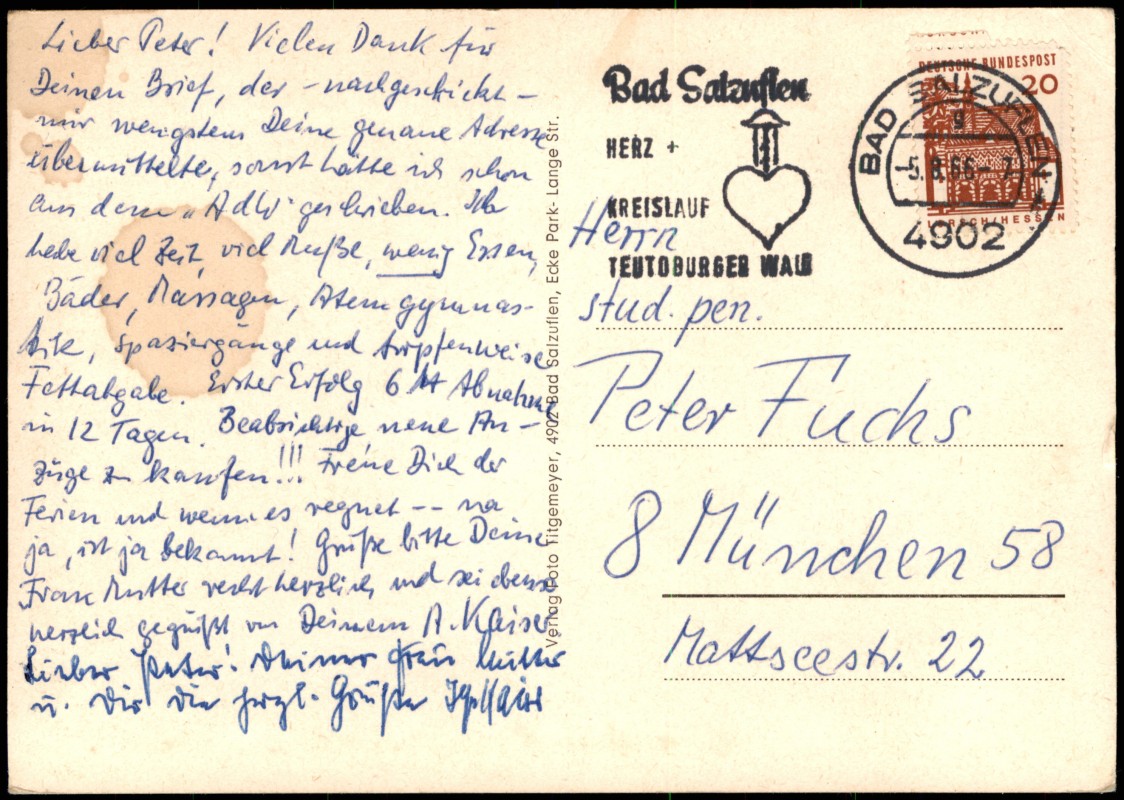 Lieber Peter! Vielen Dank für
Deinen Brief, der – nachgeschickt –
mir wenigstens Deine genaue Adresse
übermittelte, sonst hätte ich schon
aus dem „AdW" geschrieben. Ich
habe viel Zeit, viel Muße, wenig Essen,
Bäder, Massagen, Atemgymnas-
tik, Spaziergänge und tropfenweise
Fettabgabe. Erster Erfolg 6 Abnahme
in 12 Tagen. Beabsichtige neue An-
züge zu kaufen!!! Freue Dich der
Ferien und wenn es regnet -- na
ja, ist ja bekannt! Grüße bitte Deine
Frau Mutter recht herzlich und sei ebenso
herzlich gegrüßt von Deinem A. Kaiser
Lieber Peter! Deiner Frau Mutter
u. Dir die herzl. Grüße
Verlag Foto Titgemeyer, 4902 Bad Salzuflen, Ecke Park- Lange Str.
Bad Salzuflen
HERZ +
KREISLAUF
TEUTOBURGER WALD
DEUTSCHE BUNDESPOST
20
LORSCH/HESSEN
BAD SALZUFLEN
g
-5.8.66-7
4902
Herrn
stud. pen.
Peter Fuchs
8 München 58
Mattseestr. 22